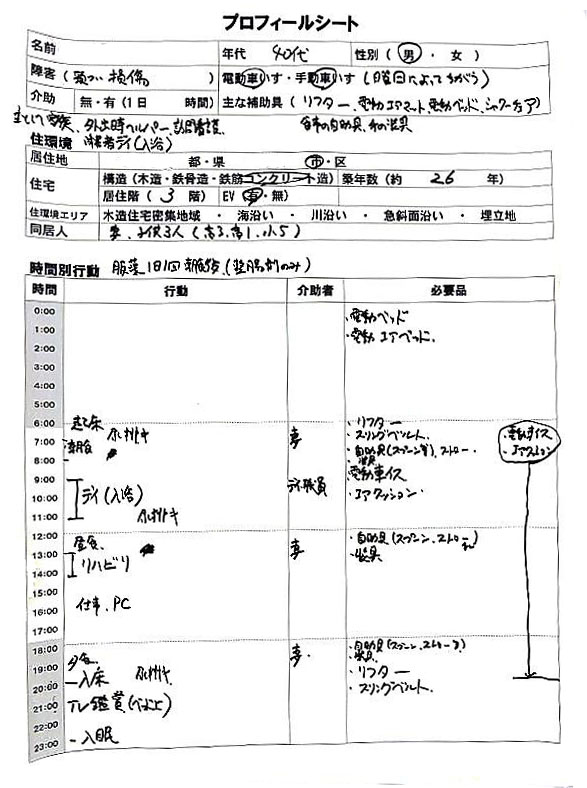 プロフィールシート
名前 年代 40代 性別 ( 男 ・ 女 )
障害 ( 頚つい損傷 ) 電動車いす・手動車いす (曜日によってちがう)
介助 無・有 (1日 時間) 主な補助具 ( リフター、電動エアマット、電動ベッド、シャワーチェア)
主として家族、外出時ヘルパー、訪問看護、 食事の自助具、手の装具
住環境 障害者デイ(入浴)
居住地 都・県 市・区
住宅 構造 (木造・鉄骨造・鉄筋コンクリート造) 築年数 (約 26 年)
居住階 ( 3 階) EV (有・無)
住環境エリア 木造住宅密集地域 ・ 海沿い ・ 川沿い ・ 急斜面沿い ・ 埋立地
同居人 妻、子供3人 (高3、高1、小5)
時間別行動 服薬 1日1回 朝食後、(整腸剤のみ)
時間 行動 介助者 必要品
0:00 ・電動ベッド
1:00 ・電動エアベッド、
2:00
3:00
4:00
5:00
6:00 起床 ・リフター
7:00 朝食 妻 ・スリングベルト、 ・電動車イス
・自助具(スプーン等)、ストロー ・エアクッション
8:00 ・装具
9:00 デイ職員 電動車イス
10:00 デイ(入浴) ・エアクッション
11:00
12:00 昼食、 ・自助具(スプーン、ストロー
13:00 リハビリ 妻 ・装具
14:00
15:00 仕事、PC
16:00
17:00
18:00 ・自助具(スプーン、ストロー)
19:00 夕食 妻・ ・装具、
20:00 入床 ・リフター
・スリングベルト、
21:00 TV鑑賞
22:00
23:00 入眠